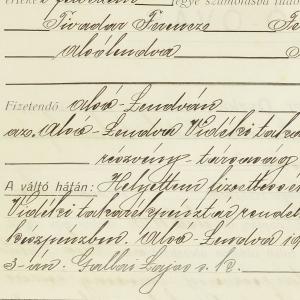 értékét jegye számolásba tudó
Tivadar Ferencz Fe
Alsólendva
Fizetendő Alsó-Lendván
az Alsó-Lendva Vidéki taka
részvény társaság
A váltó hátán: Helyettem fizettessé
Vidéki takarékpénztár rendel
készpénzben. Alsó-Lendva 19
3-án. Gallai Lajos s. k.